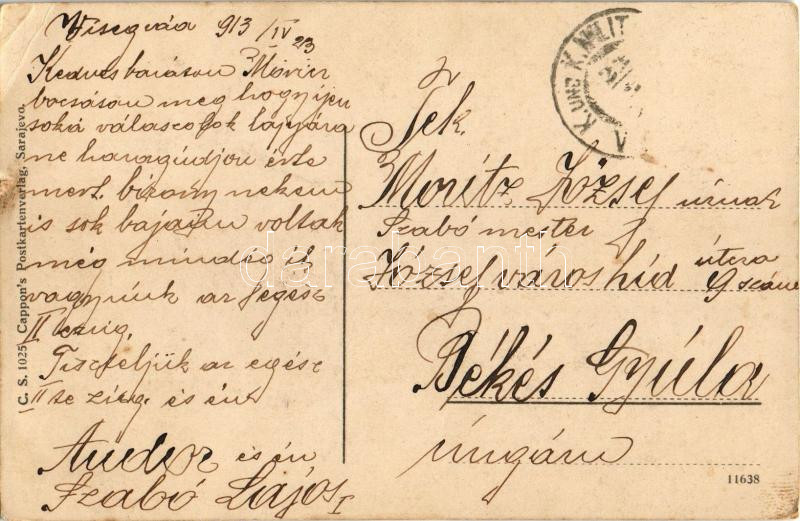 Visegrád 913/IV 23
Kedves barátom Móricz
bocsásson meg hogy ijen
soká válaszolok lapjára
ne haragudjon érte
mert bizony nekem
is sok bajaim voltak
még mindég it
vagyunk az egész
II
Tiszteljük az egész
II és én
Andor és én
Szabó Lajos
C. S. 1025 Cappon's Postkartenverlag, Sarajevo.
K. UND K. MILIT
Tek.
Moritz József úrnak
Szabó mester
Józsefvároshíd útcza
9 szám
Békés Gyúla
Ungárn
11638
darabanth